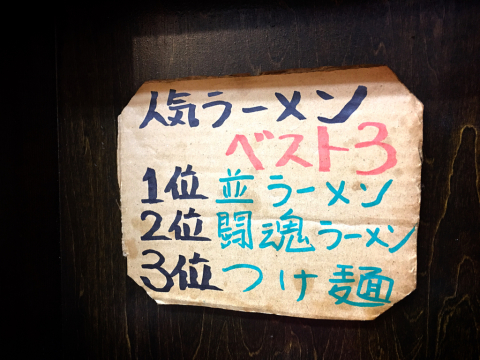 人気ラーメン
ベスト3
1位 並ラーメン
2位 闘魂ラーメン
3位 つけ麺